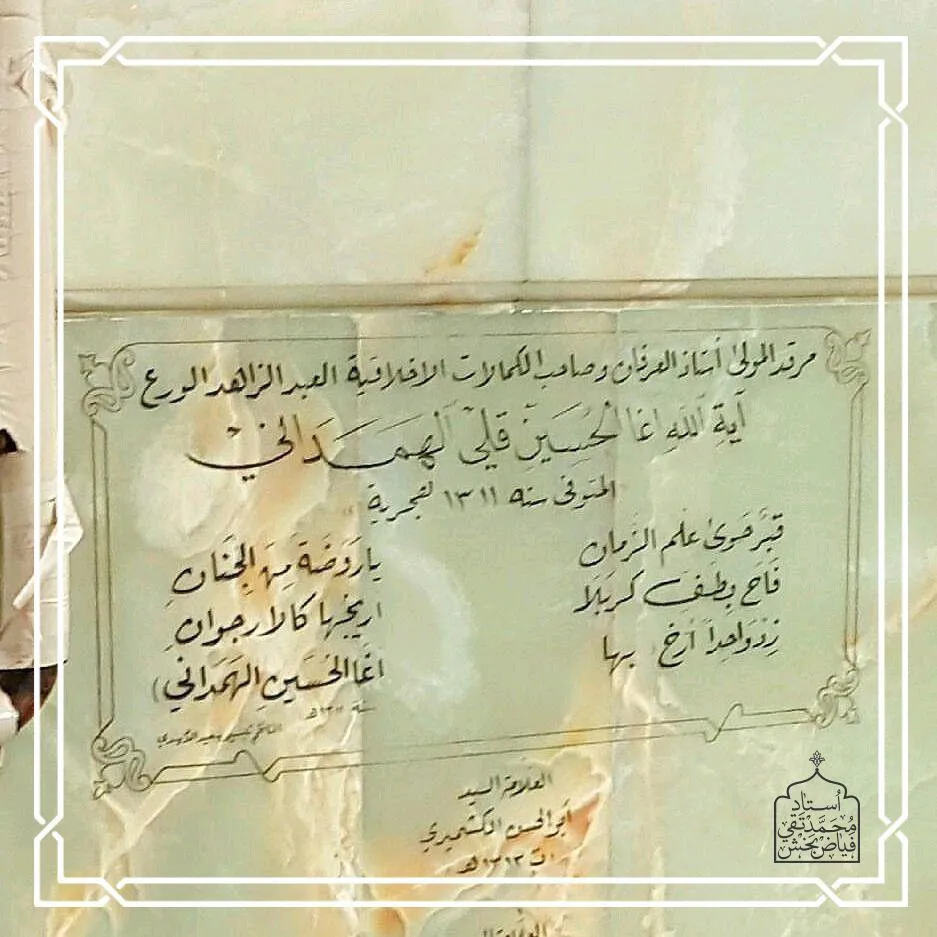 مرقد المولى أستاذ العرفان وصاحب الكمالات الاخلاقية العبد الزاهد الورع
آيَةِ اللهِ اغا الحُسَينِ قلي الهَمَدَاني
المتوفى سنه ١٣١١ لهجرية
قبرٌ حَوىٰ عَلَم الزَمان يا رَوضَة مِنَ الجِنَانِ
فَاحَ بِطَفِّ كربَلَا اريجُها كالارجوانِ
زِدْ وَاحِداً أرِخ بها (اغا الحُسَينِ الهَمَدَاني)
سنة ١٣١١هـ
العلامة السيد
أبو الحسن الكشميري
ت ١٣١٣هـ
العلامة
أستاد
محمد تقی
فیاض‌بخش